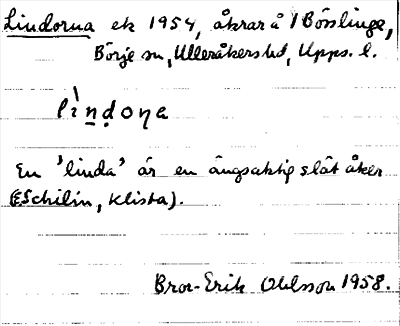 Lindorna ek 1954, åkrar å 1 Börslinge,
Börje sn, Ulleråkers hd, Upps. l.
lìṇḍoṇa
En 'linda' är en ängsaktig slät åker
(E Schilin, Klista).
Bror-Erik Ohlsson 1958.